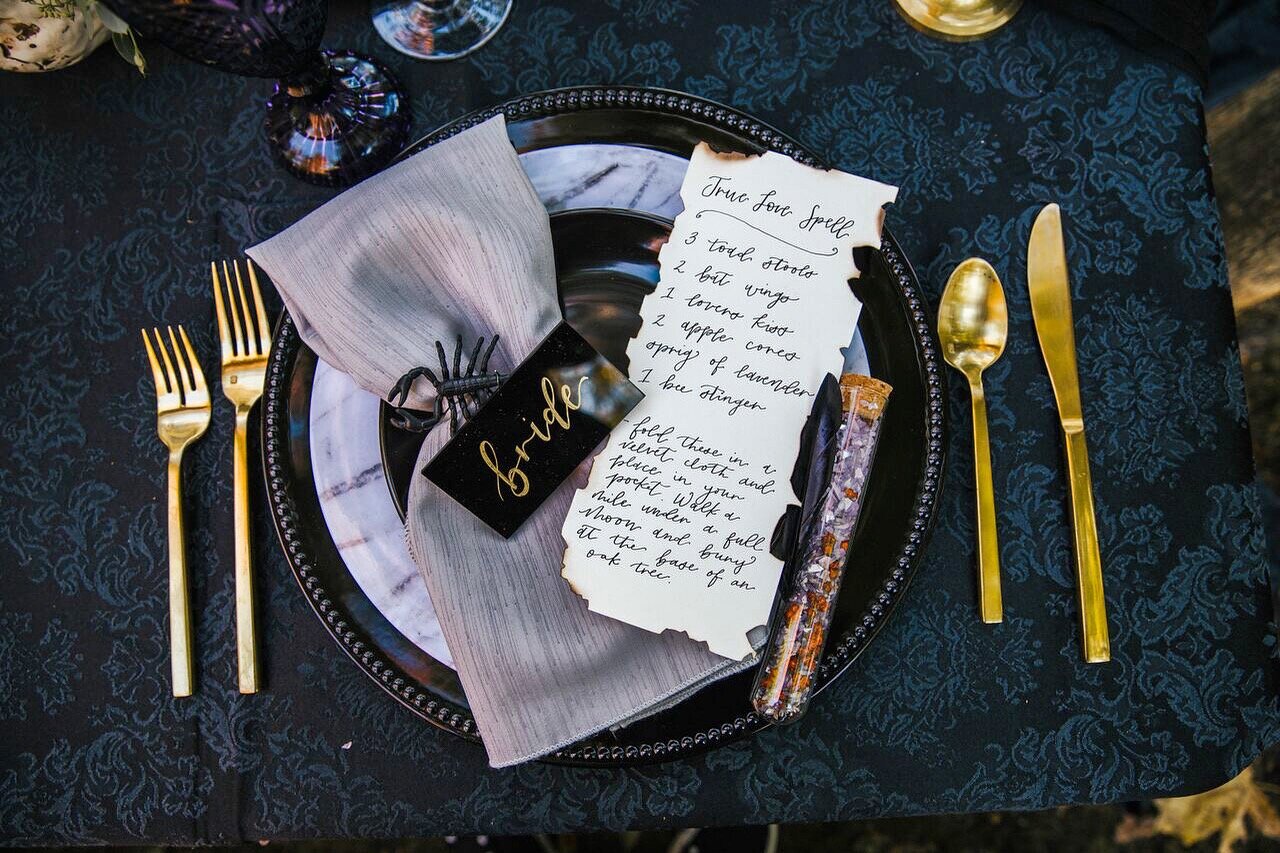 True Love Spell
3 toad stools
2 bat wings
1 lovers kiss
2 apple cores
sprig of lavender
1 bee stinger
- fold these in a
velvet cloth and
place in your
pocket. Walk a
mile under a full
moon and bury
at the base of an
oak tree.
bride